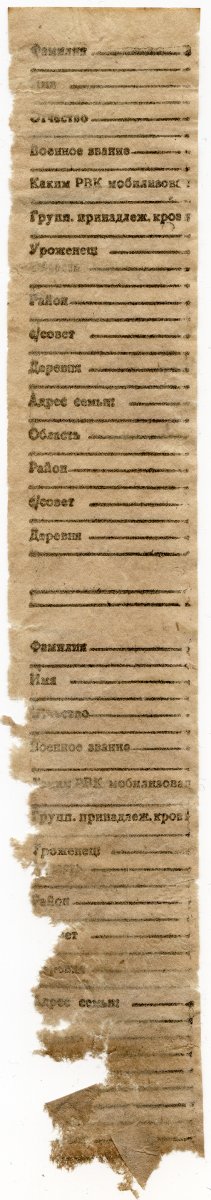 Фамилия
Имя
Отчество
Военное звание
Каким РВК мобилизован
Групп. принадлеж. крови
Уроженец:
Область
Район
с/совет
Деревня
Адрес семьи:
Область
Район
с/совет
Деревня
Фамилия
Имя
Отчество
Военное звание
Каким РВК мобилизован
Групп. принадлеж. крови
Уроженец:
Район
вет
Адрес семьи: